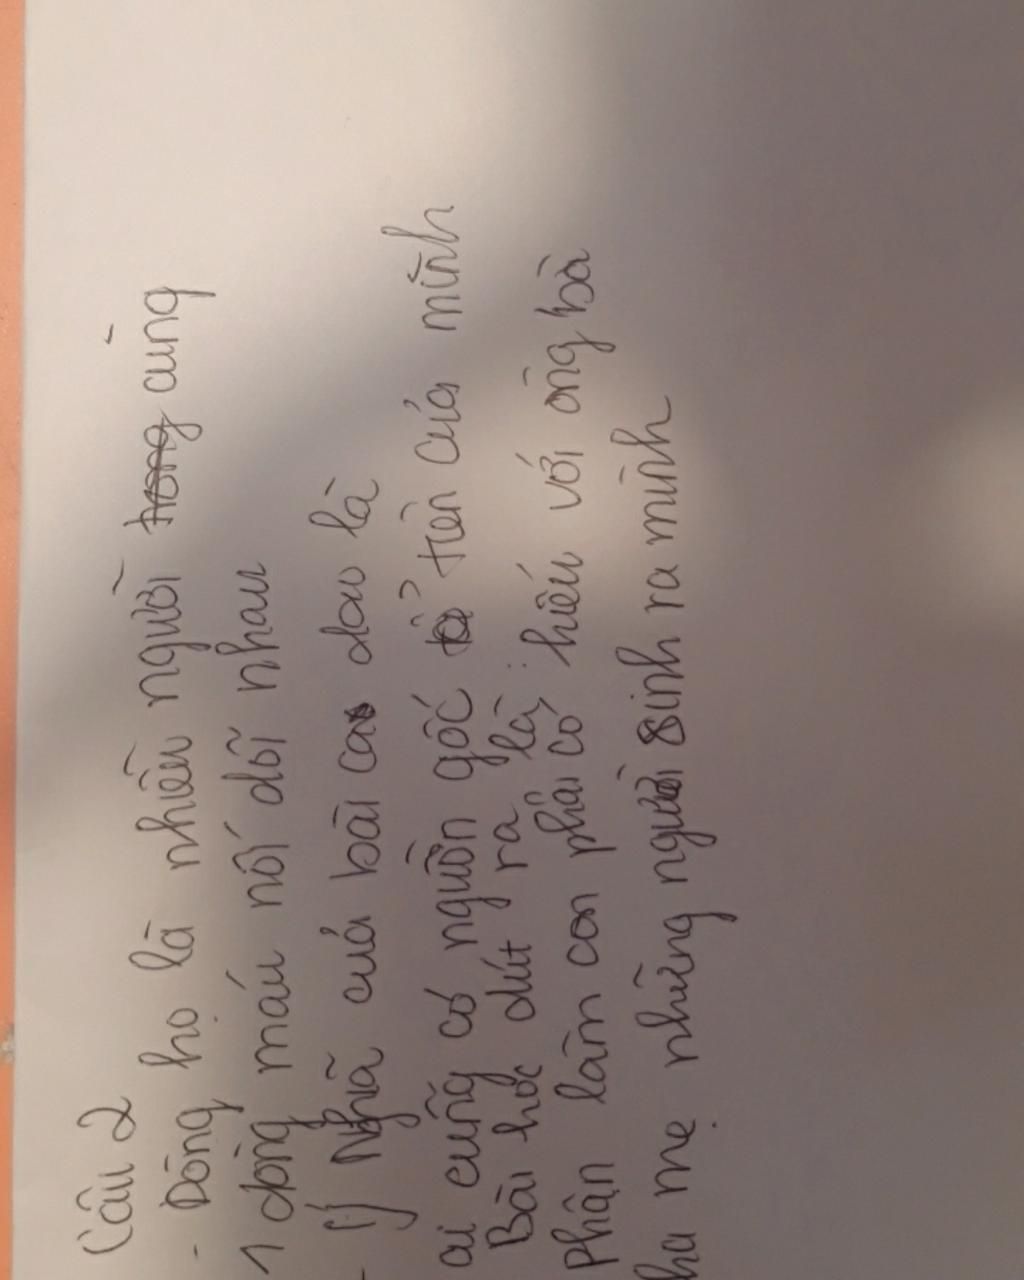 Câu 2
- Dòng họ là nhiều người trong cùng
1 dòng máu nối dõi nhau
- Ý Nghĩa của bài cao dao là
ai cũng có nguồn gốc tổ tiên của mình
Bài học dút ra là :
Phận làm con phải có hiếu với ông bà
cha mẹ những người sinh ra mình